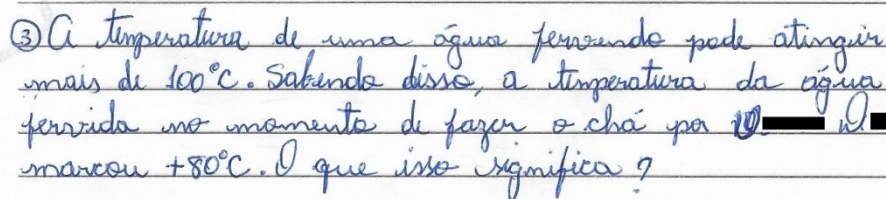 ③ A temperatura de uma água fervendo pode atingir
mais de 100°C. Sabendo disso, a temperatura da água
fervida no momento de fazer o chá por
marcou +80°C. O que isso significa?